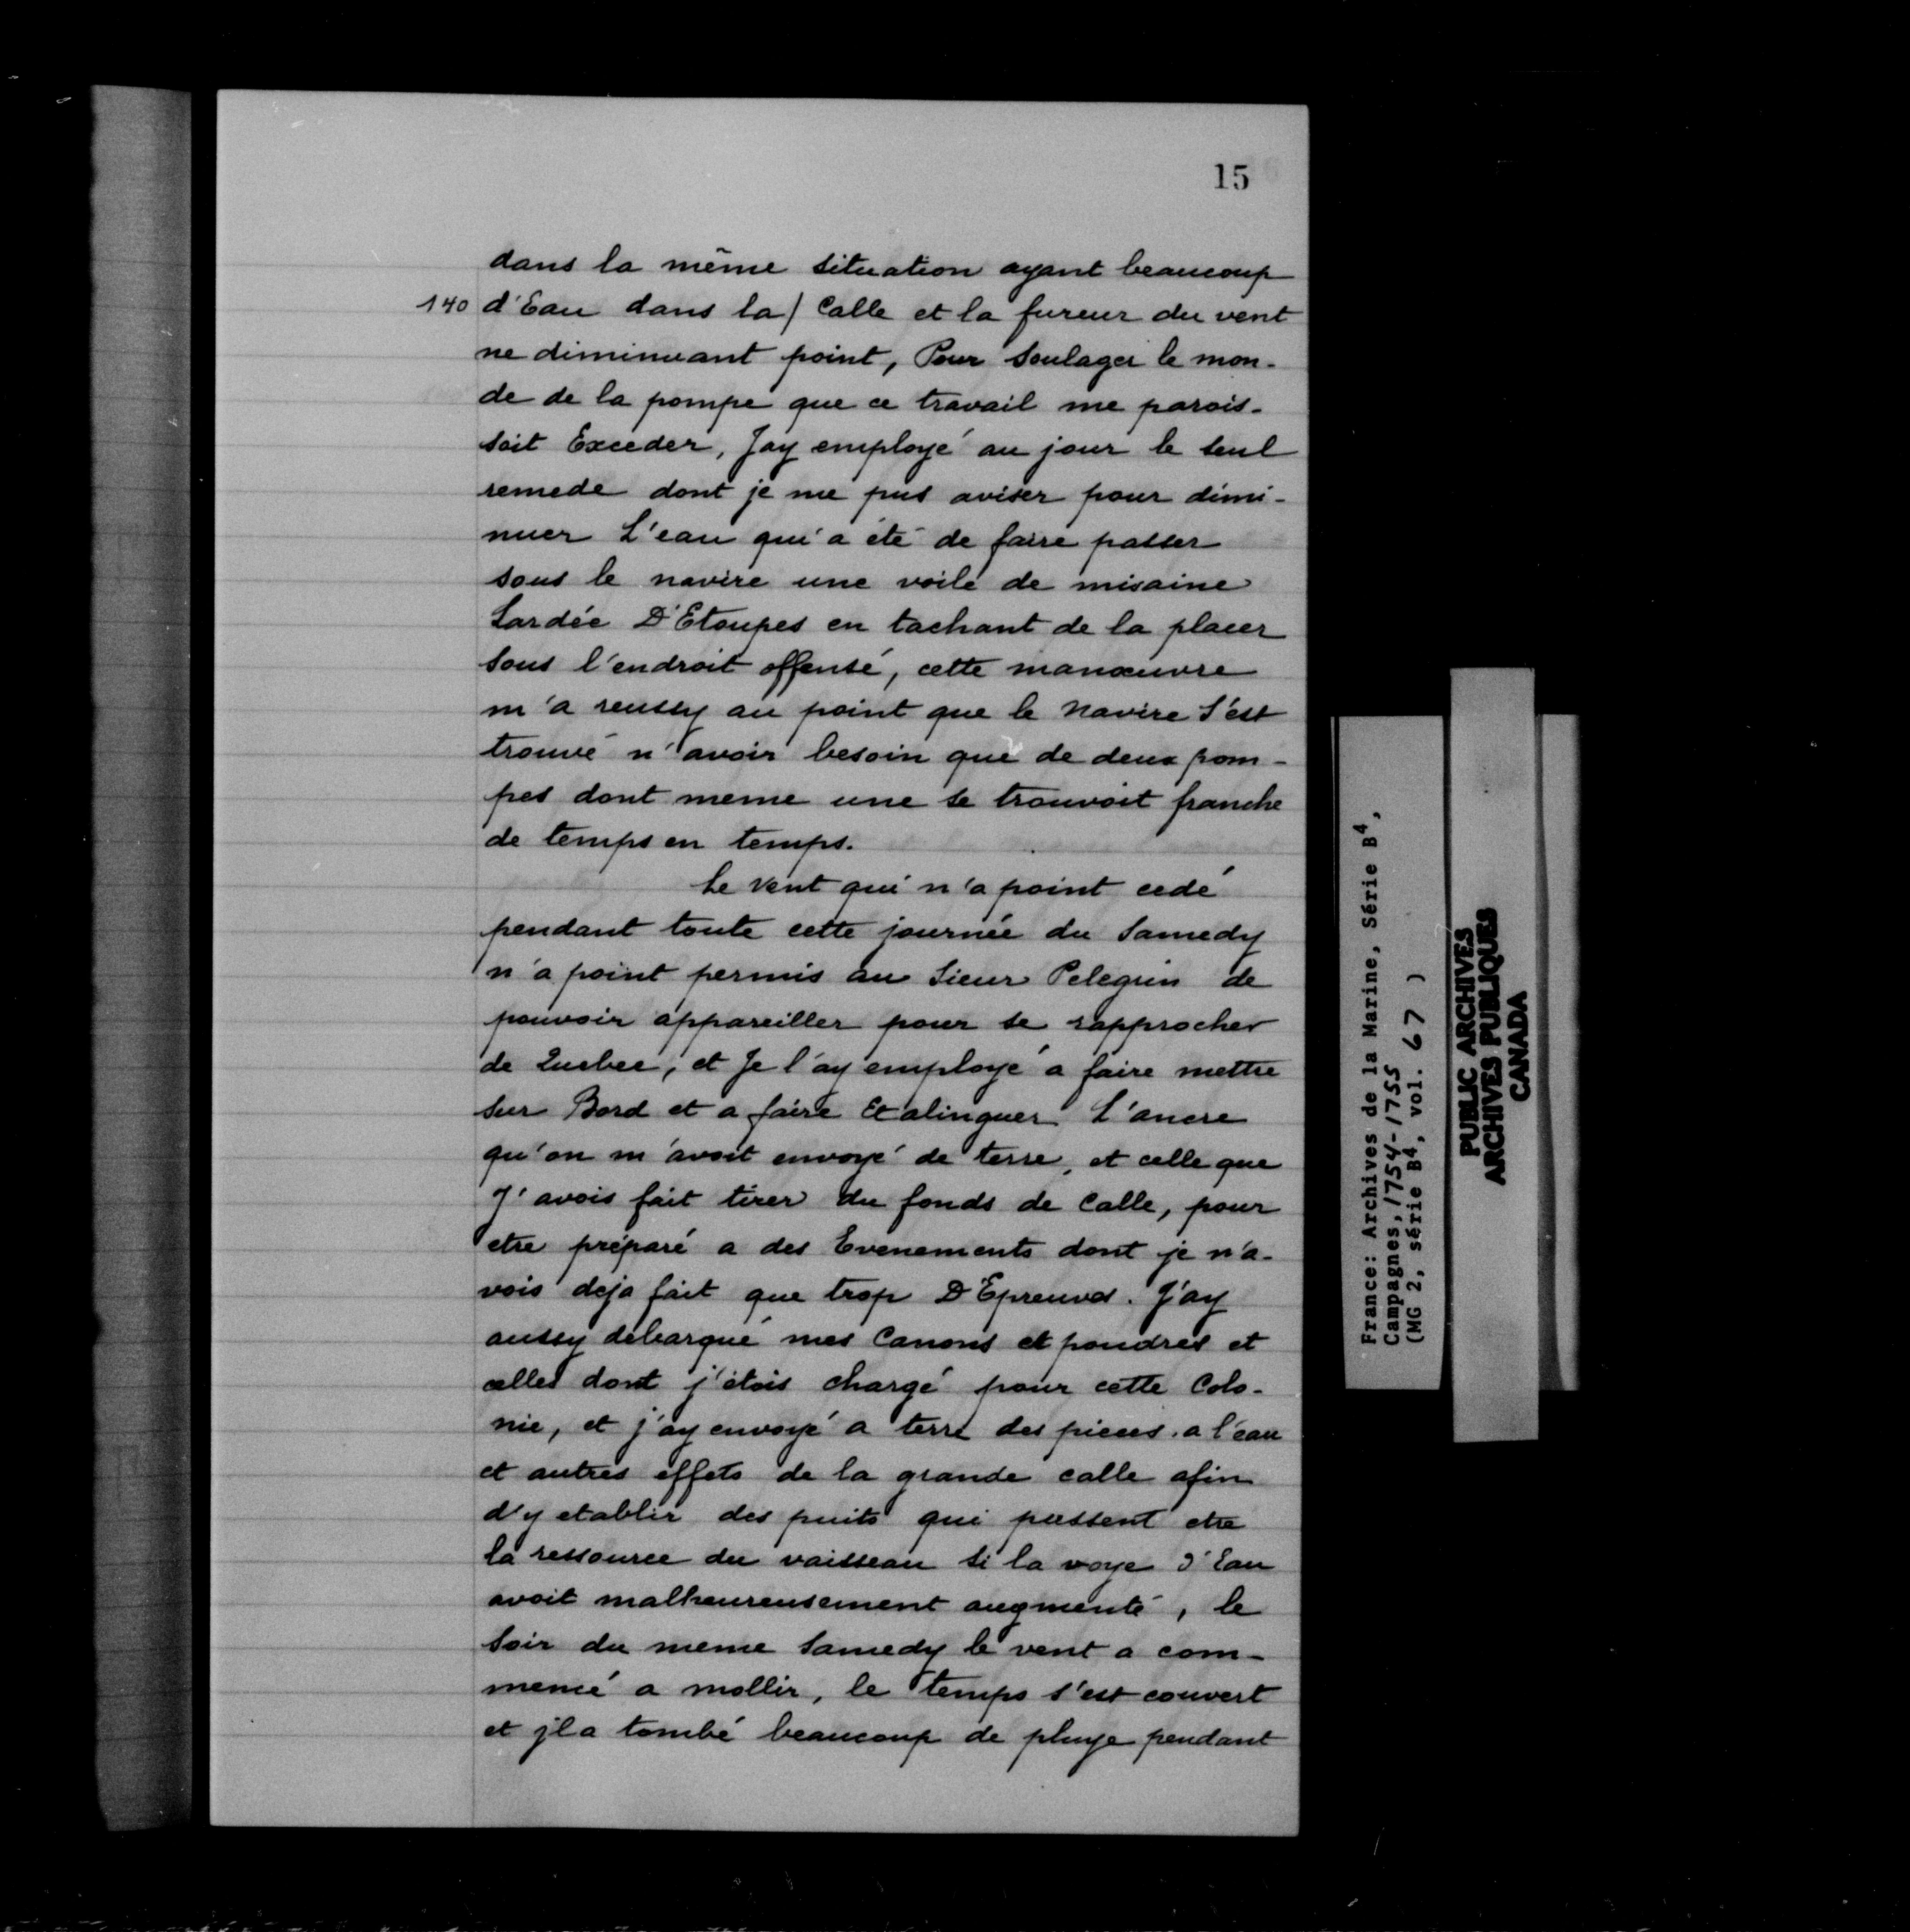 15
dans la même situation ayant beaucoup
140 d'Eau dans la / Calle et la fureur du vent
ne diminuant point, Pour Soulager le mon-
de de la pompe que ce travail me parois-
soit Exceder, Jay employé au jour le seul
remede dont je me pus aviser pour dimi-
nuer L'eau qui a été de faire passer
sous le navire une voile de misaine
Lardée D'Etoupes en tachant de la placer
sous l'endroit offensé, cette manœuvre
m'a reussy au point que le Navire S'est
trouvé n'avoir besoin que de deux pom-
pes dont meme une se trouvoit franche
de temps en temps.
Le vent qui n'a point cedé
pendant toute cette journée du Samedy
n'a point permis au Sieur Pelegrin de
pouvoir appareiller pour se rapprocher
de Quebec, et Je l'ay employé a faire mettre
sur Bord et a faire Etalinguer L'ancre
qu'on m'avoit envoyé de terre, et celle que
J'avois fait tirer du fonds de Calle, pour
etre préparé a des Evenements dont je n'a-
vois deja fait que trop D'Epreuves. J'ay
aussy debarqué mes Canons et poudres et
celles dont j'étois chargé pour cette Colo-
nie, et j'ay envoyé a terre des pieces a l'eau
et autres effets de la grande calle afin
d'y etablir des puits qui pussent etre
la ressource du vaisseau si la voye d'Eau
avoit malheureusement augmenté, le
Soir du meme Samedy le vent a com-
mencé a mollir, le temps s'est couvert
et jl a tombé beaucoup de pluye pendant
France: Archives de la Marine, Série B4,
Campagnes, 1754-1755
(MG 2, série B4, vol. 67 )
PUBLIC ARCHIVES
ARCHIVES PUBLIQUES
CANADA